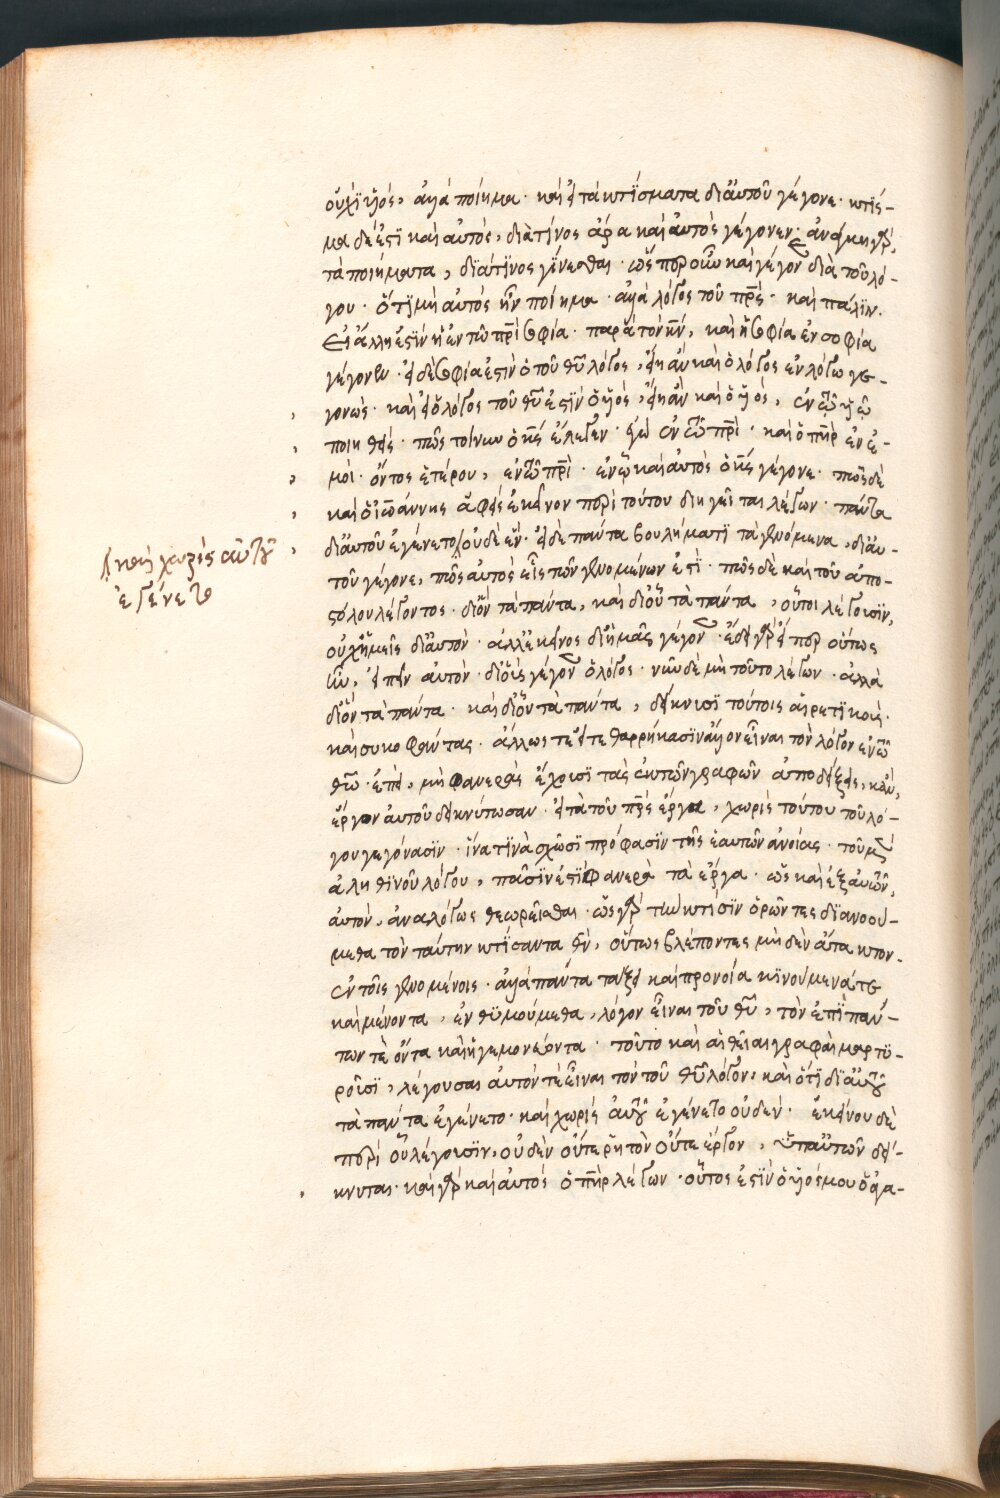 οὐχὶ υἱός, ἀλλὰ ποίημα· καὶ εἰ τὰ κτίσματα δι' αὐτοῦ γέγονε· κτίσ-
μα δέ ἐστι καὶ αὐτὸς, διὰ τίνος ἄρα καὶ αὐτὸς γέγονεν· ἀνάγκη γὰρ,
τὰ ποιήματα, διά τινος γίνεσθαι· ὥσπερ οὖν καὶ γέγονε διὰ τοῦ λό-
γου· ὅτι μὴ αὐτὸς ἦν ποίημα· ἀλλὰ λόγος τοῦ πρς· καὶ πάλιν.
Εἰ ἄλλη ἐστὶν ἡ ἐν τῶ πρὶ σοφία· παρὰ τὸν κν, καὶ ἡ σοφία ἐν σοφία
γέγονεν· εἰ δὲ σοφία ἐστὶν ὁ τοῦ θυ λόγος, εἴη ἂν καὶ ὁ λόγος ἐν λόγω γε-
γονώς· καὶ εἰ ὁ λόγος τοῦ θυ ἐστὶν ὁ υἱὸς, εἴη ἂν καὶ ὁ υἱὸς, ἐν τῶ υἱῶ
ποιηθείς· πῶς τοίνυν ὁ κς ἔλεγεν· ἐγὼ ἐν τῶ πρὶ· καὶ ὁ πηρ ἐν ἐ-
μοὶ· ὄντος ἑτέρου, ἐν τῶ πρὶ· ἐν ᾧ καὶ αὐτὸς ὁ κς γέγονε· πῶς δὲ
καὶ ὁ ἰωάννης ἀφεὶς ἐκεῖνον περὶ τούτου διηγεῖται λέγων· πάντα
δι' αὐτοῦ ἐγένετο οὐδὲ ἕν· εἰ δὲ πάντα βουλήματι τὰ γενόμενα, δι' αὐ-
καὶ χωρὶς αὐτοῦ
ἐγένετο
τοῦ γέγονε, πῶς αὐτὸς εἷς τῶν γενομένων ἐστί· πῶς δὲ καὶ τοῦ ἀπο-
στόλου λέγοντος· δι' ὃν τὰ πάντα, καὶ δι' οὗ τὰ πάντα, οὗτοι λέγουσιν,
οὐχ ἡμεῖς δι' αὐτὸν· ἀλλ' ἐκεῖνος δι' ἡμᾶς γέγονεν· ἔδει γὰρ εἴπερ οὕτως
ἦν, εἰπεῖν αὐτὸν· δι' οὓς γέγονεν ὁ λόγος· νῦν δὲ μὴ τοῦτο λέγων· ἀλλὰ
δι' ὃν τὰ πάντα· καὶ δι' οὗ τὰ πάντα, δείκνυσι τούτοις αἱρετικοὺς·
καὶ συκοφάντας· ἄλλως τε εἴτε θαρρήκασιν ἄλλον εἶναι τὸν λόγον ἐν τῶ
θῶ· ἐπεὶ, μὴ φανερὰς ἔχουσι τὰς ἐκ τῶν γραφῶν ἀποδείξεις, κἂν,
ἔργον αὐτοῦ δεικνύτωσαν· εἰ τὰ τοῦ πρς ἔργα, χωρὶς τούτου τοῦ λό-
γου γεγόνασιν· ἵνα τινὰ σχῶσι πρόφασιν τῆς ἑαυτῶν ἀνοίας· τοῦ μὲν
ἀληθινοῦ λόγου, πᾶσιν ἐστὶ φανερὰ τὰ ἔργα· ὡς καὶ ἐξ αὐτῶν,
αὐτὸν, ἀναλόγως θεωρεῖσθαι· ὡς γὰρ τὴν κτίσιν ὁρῶντες διανοού-
μεθα τὸν ταύτην κτίσαντα θν, οὕτως βλέποντες μηδὲν ἄτακτον·
ἐν τοῖς γενομένοις· ἀλλὰ πάντα τάξει καὶ προνοία κινούμενά τε
καὶ μένοντα, ἐνθυμούμεθα, λόγον εἶναι τοῦ θυ, τὸν ἐπὶ πάν-
των τὲ ὄντα καὶ ἡγεμονεύοντα· τοῦτο καὶ αἱ θεῖαι γραφαὶ μαρτυ-
ροῦσι, λέγουσαι αὐτόν τὲ εἶναι τὸν τοῦ θυ λόγον, καὶ ὅτι δι' αὐτοῦ
τὰ πάντα ἐγένετο· καὶ χωρὶς αὐτοῦ ἐγένετο οὐδέν· ἐκείνου δὲ
περὶ οὗ λέγουσιν, οὐδὲν οὔτε ῥητὸν οὔτε ἔργον, ὑπ' αὐτῶν δεί-
κνυται· καὶ γὰρ καὶ αὐτὸς ὁ πηρ λέγων· οὗτος ἐστὶν ὁ υἱός μου ὁ ἀγα-